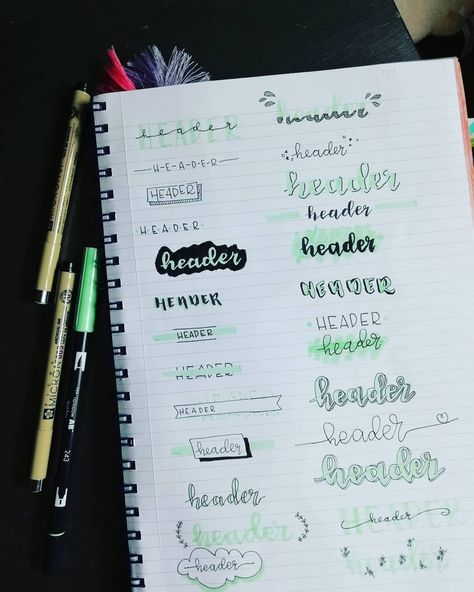 HEADER
header
H-E-A-D-E-R
HEADER
HEADER
header
HEADER
HEADER
HEADER
HEADER
HEADER
header
header
header
header
header
header
header
header
header
HEADER
HEADER
header
header
header
header
HEADER
header
header
MICRON
243